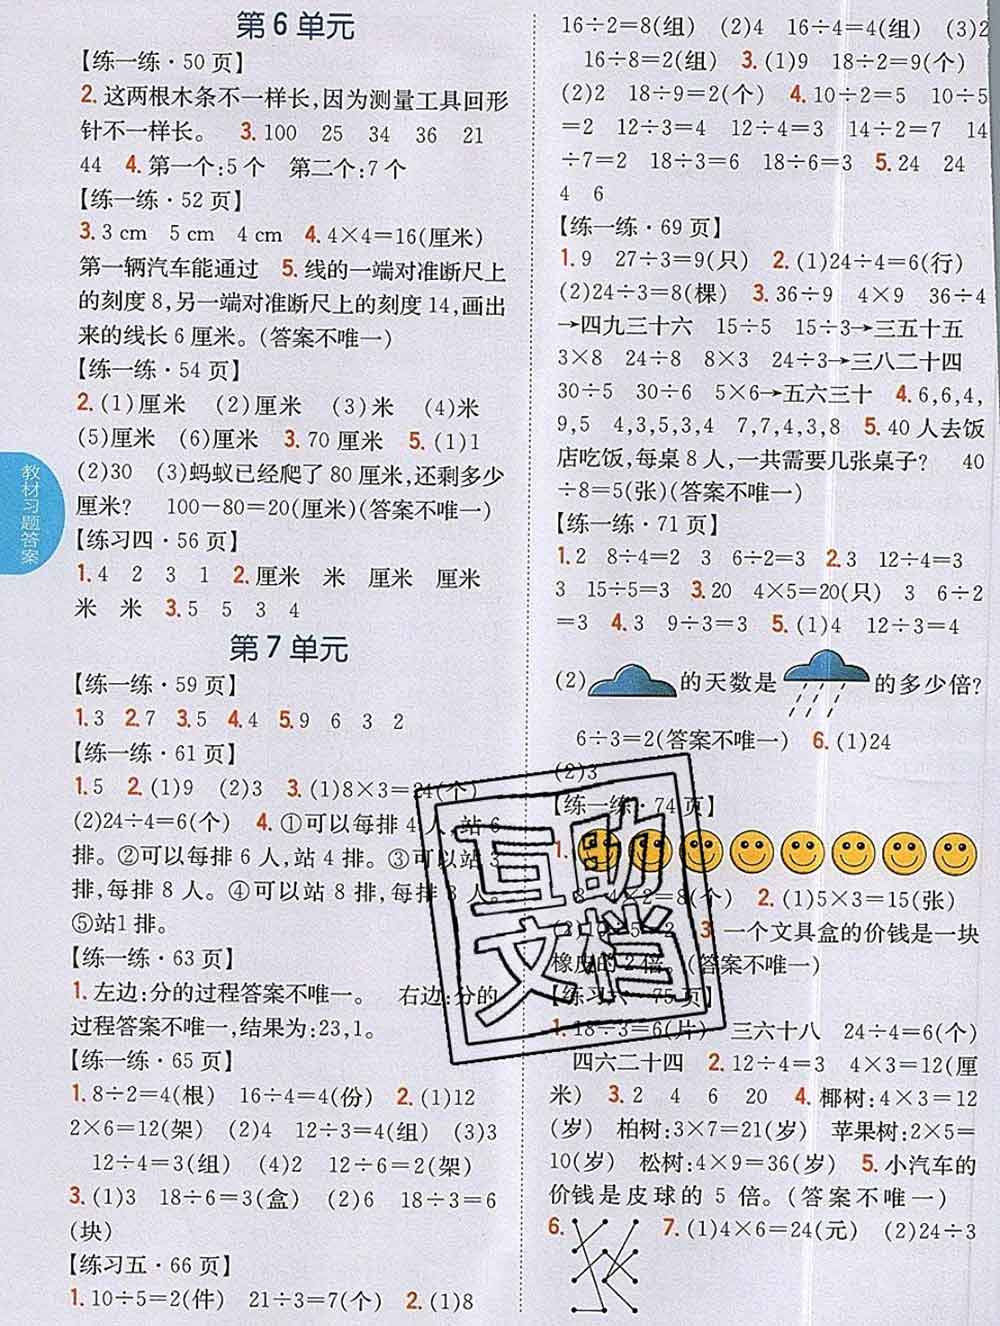 第6单元
【练一练·50页】
2.这两根木条不一样长,因为测量工具回形
针不一样长。 3.100 25 34 36 21
44 4.第一个:5个 第二个:7个
【练一练·52页】
3.3 cm 5 cm 4 cm 4.4×4=16(厘米)
第一辆汽车能通过 5.线的一端对准断尺上
的刻度8,另一端对准断尺上的刻度14,画出
来的线长6厘米。(答案不唯一)
【练一练·54页】
2.(1)厘米 (2)厘米 (3)米 (4)米
(5)厘米 (6)厘米 3.70厘米 5.(1)1
(2)30 (3)蚂蚁已经爬了80厘米,还剩多少
厘米? 100-80=20(厘米)(答案不唯一)
【练习四·56页】
1.4 2 3 1 2.厘米 米 厘米 厘米
米 米 3.5 5 3 4
第7单元
【练一练·59页】
1.3 2.7 3.5 4.4 5.9 6 3 2
【练一练·61页】
1.5 2.(1)9 (2)3 3.(1)8×3=24(个)
(2)24÷4=6(个) 4.①可以每排4人,站6
排。②可以每排6人,站4排。③可以站3
排,每排8人。④可以站8排,每排3人。
⑤站1排。
【练一练·63页】
1.左边:分的过程答案不唯一。 右边:分的
过程答案不唯一,结果为:23,1。
【练一练·65页】
1.8÷2=4(根) 16÷4=4(份) 2.(1)12
2×6=12(架) (2)4 12÷3=4(组) (3)3
12÷4=3(组) (4)2 12÷6=2(架)
3.(1)3 18÷6=3(盒) (2)6 18÷3=6
(块)
【练习五·66页】
1.10÷5=2(件) 21÷3=7(个) 2.(1)8
教材习题答案
16÷2=8(组) (2)4 16÷4=4(组) (3)2
16÷8=2(组) 3.(1)9 18÷2=9(个)
(2)2 18÷9=2(个) 4.10÷2=5 10÷5
=2 12÷3=4 12÷4=3 14÷2=7 14
÷7=2 18÷3=6 18÷6=3 5.24 24
4 6
【练一练·69页】
1.9 27÷3=9(只) 2.(1)24÷4=6(行)
(2)24÷3=8(棵) 3.36÷9 4×9 36÷4
→四九三十六 15÷5 15÷3→三五十五
3×8 24÷8 8×3 24÷3→三八二十四
30÷5 30÷6 5×6→五六三十 4.6,6,4,
9,5 4,3,5,3,4 7,7,4,3,8 5.40人去饭
店吃饭,每桌8人,一共需要几张桌子? 40
÷8=5(张)(答案不唯一)
【练一练·71页】
1.2 8÷4=2 3 6÷2=3 2.3 12÷4=3
3 15÷5=3 3.20 4×5=20(只) 3 6÷2
=3 4.3 9÷3=3 5.(1)4 12÷3=4
(2) 的天数是 的多少倍?
6÷3=2(答案不唯一) 6.(1)24
(2)3
【练一练·74页】
1.
×2=8(个) 2.(1)5×3=15(张)
3.一个文具盒的价钱是一块
橡皮的2倍。(答案不唯一)
【练习六·75页】
1.18÷3=6(片) 三六十八 24÷4=6(个)
四六二十四 2.12÷4=3 4×3=12(厘
米) 3.2 4 6 20 4.椰树:4×3=12
(岁) 柏树:3×7=21(岁) 苹果树:2×5=
10(岁) 松树:4×9=36(岁) 5.小汽车的
价钱是皮球的5倍。(答案不唯一)
6. 7.(1)4×6=24(元) (2)24÷3
互助
文档